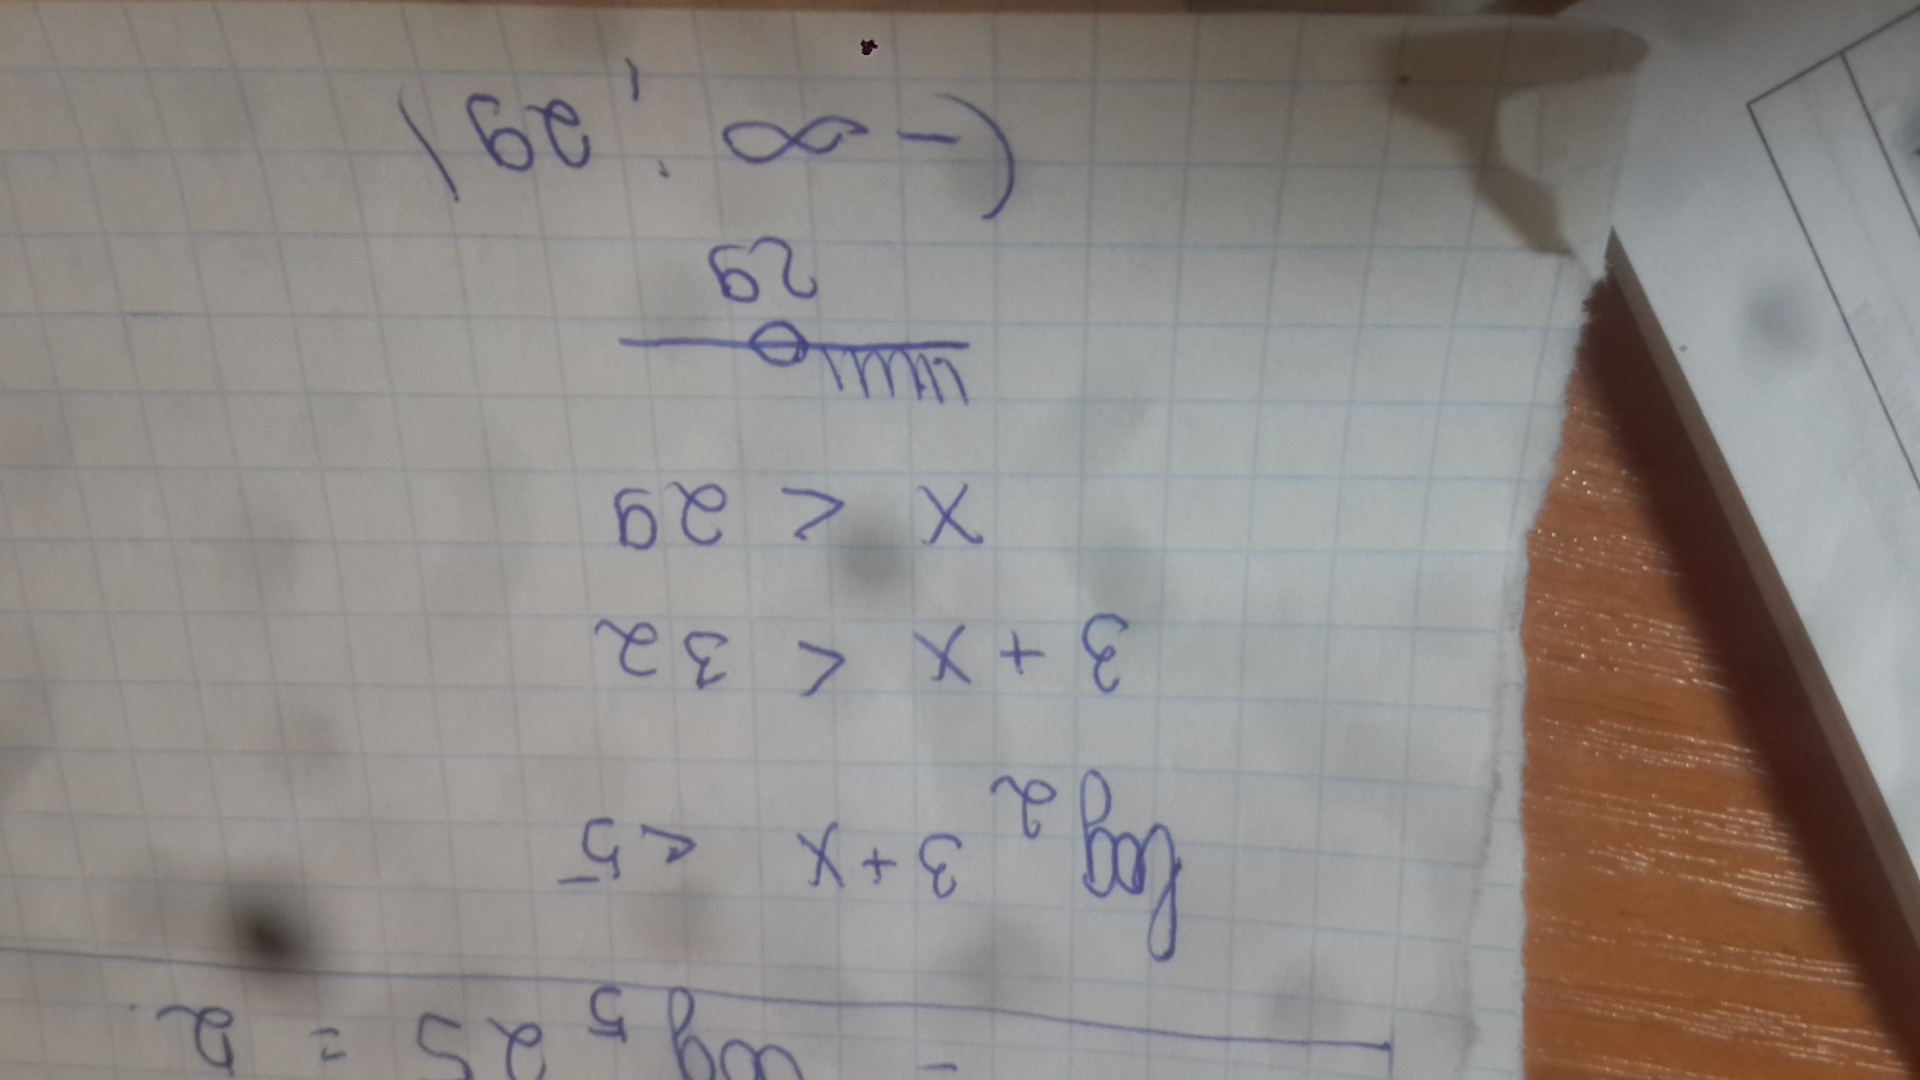 - log₅ 25 = 2
log₂ 3+x <5
3+x < 32
x < 29
29
(-∞ ; 29)